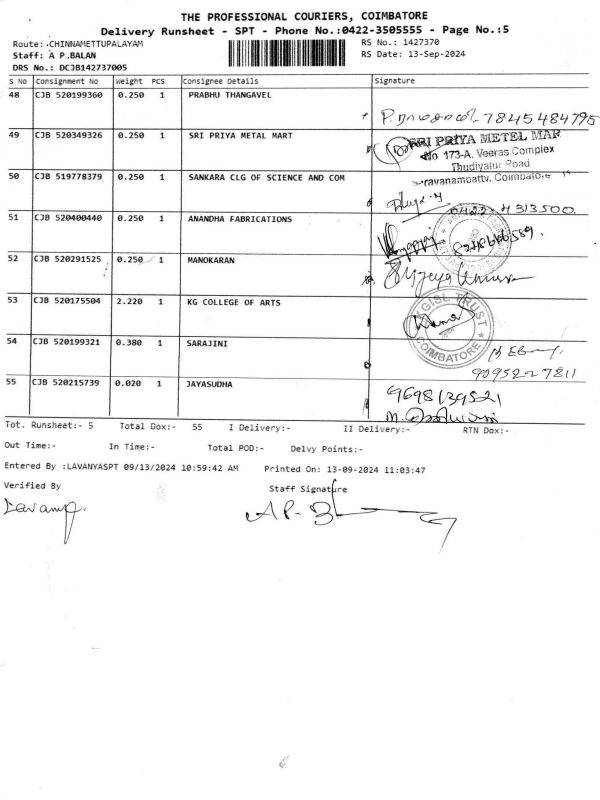 THE PROFESSIONAL COURIERS, COIMBATORE
Delivery Runsheet - SPT - Phone No.:0422-3505555 - Page No.:5
Route: .CHINNAMETTUPALAYAM RS No.: 1427370
Staff: A P BALAN RS Date: 13-Sep-2024
DRS No.: DCJB142737005
S No Consignment No Weight PCS Consignee Details Signature
48 CJB 520199360 0.250 1 PRABHU THANGAVEL
7845484795
49 CJB 520349326 0.250 1 SRI PRIYA METAL MART
SRI PRIYA METEL MAR
No 173-A, Veeras Complex
Thudiyalur Road
50 CJB 519778379 0.250 1 SANKARA CLG OF SCIENCE AND COM
Saravanampatty, Coimbatore
0422-4313500
51 CJB 520400440 0.250 1 ANANDHA FABRICATIONS
52 CJB 520291525 0.250 1 MANOKARAN
53 CJB 520175504 2.220 1 KG COLLEGE OF ARTS
KGISL TRUST
COIMBATORE
54 CJB 520199321 0.380 1 SARAJINI
9095227811
55 CJB 520215739 0.020 1 JAYASUDHA
9698139521
Tot. Runsheet:- 5 Total Dox:- 55 I Delivery:- II Delivery:- RTN Dox:-
Out Time:- In Time:- Total POD:- Delvy Points:-
Entered By :LAVANYASPT 09/13/2024 10:59:42 AM Printed On: 13-09-2024 11:03:47
Verified By Staff Signature
Lavanya.
A P. B